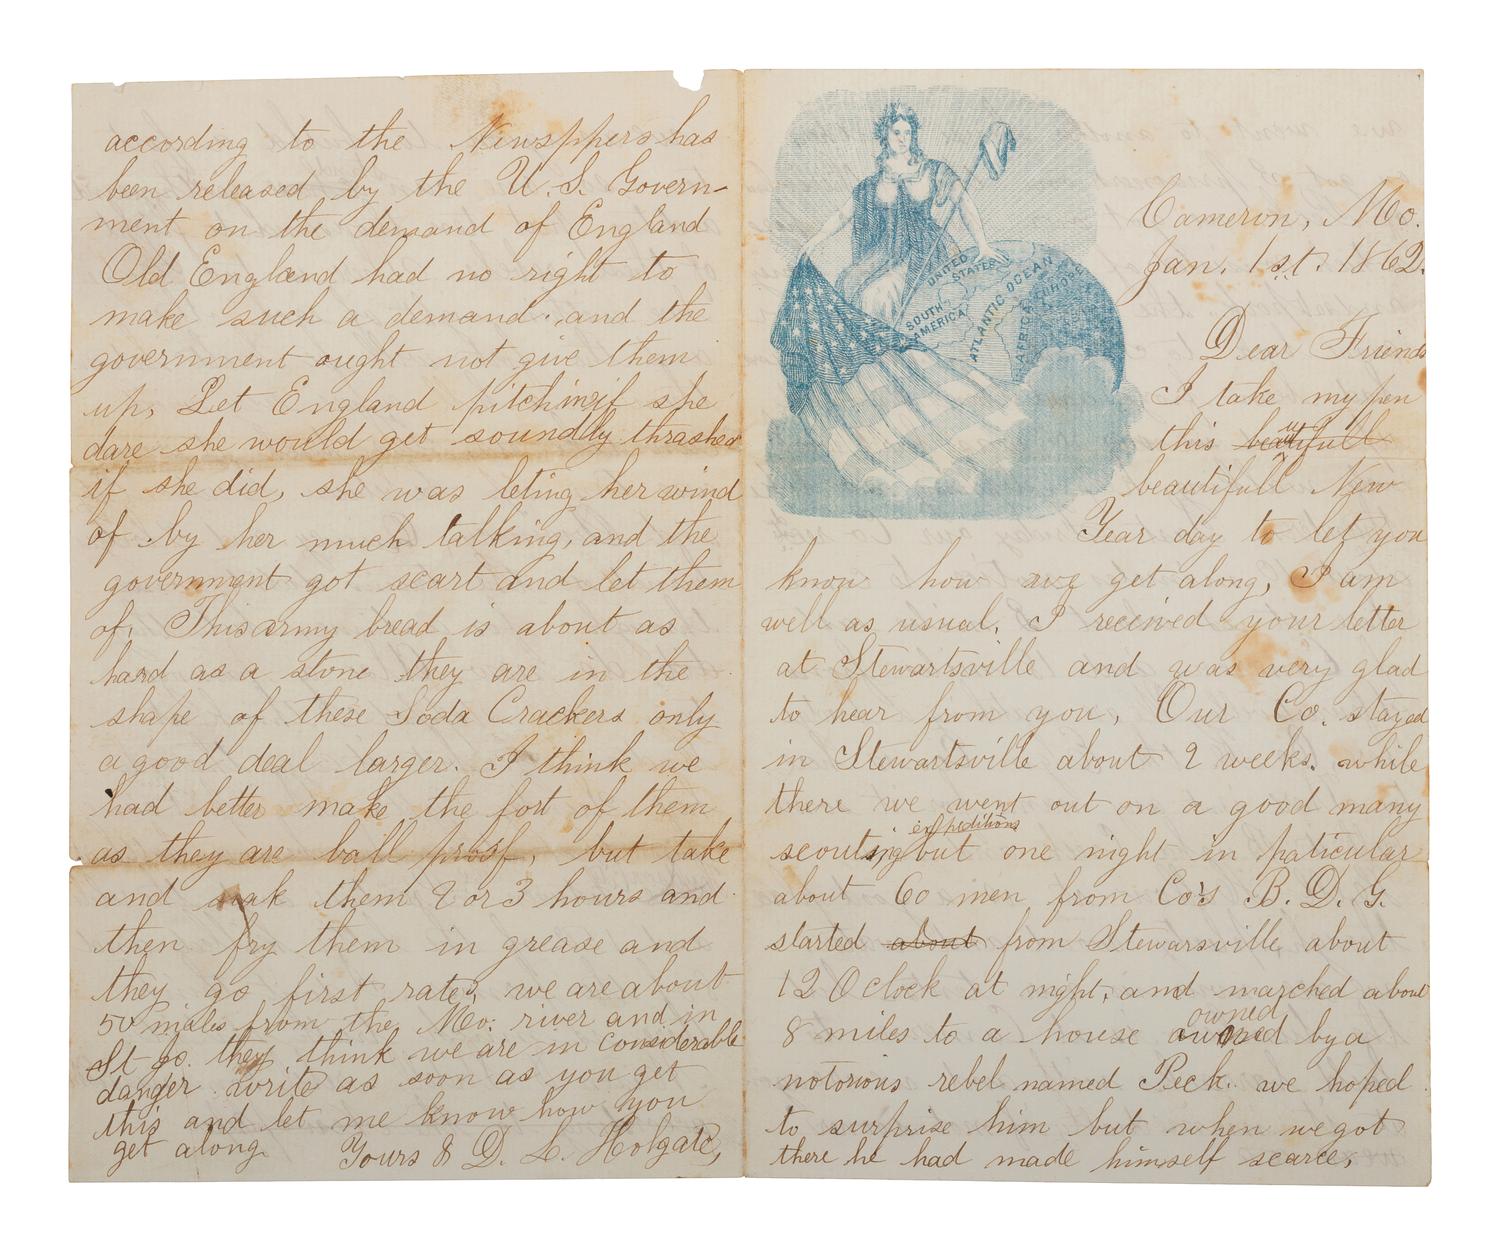 according to the Newsppers has
been released by the U.S. Govern-
ment on the demand of England
Old England had no right to
make such a demand. and the
government ought not give them
up, Let England pitchin if she
dare she would get soundly thrashed
if she did, she was leting her wind
of by her much talking, and the
government got scart and let them
of. This army bread is about as
hard as a stone they are in the
shape of these Soda Crackers only
a good deal larger. I think we
had better make the fort of them
as they are ball proof, but take
and soak them 2 or 3 hours and
then fry them in grease and
they go first rate, we are about
50 miles from the Mo. river and in
St Jo. they think we are in considerable
danger write as soon as you get
this and let me know how you
get along.
Yours & D. L. Holgate,
UNITED
STATES
SOUTH
AMERICA
ATLANTIC OCEAN
AFRICA
EUROPE
Cameron, Mo.
Jan. 1st. 1862.
Dear Friend
I take my pen
this beautifull
beautifull New
Year day to let you
know how we get along, I am
well as usual. I received your letter
at Stewartsville and was very glad
to hear from you, Our Co. stayed
in Stewartsville about 2 weeks. while
there we went out on a good many
expeditions
scouting but one night in paticular
about 60 men from Co's B. D. G.
started about from Stewarsville about
12 Oclock at night, and marched about
owned
8 miles to a house owned by a
notorious rebel named Peck. we hoped
to surprise him but when we got
there he had made himself scarce,